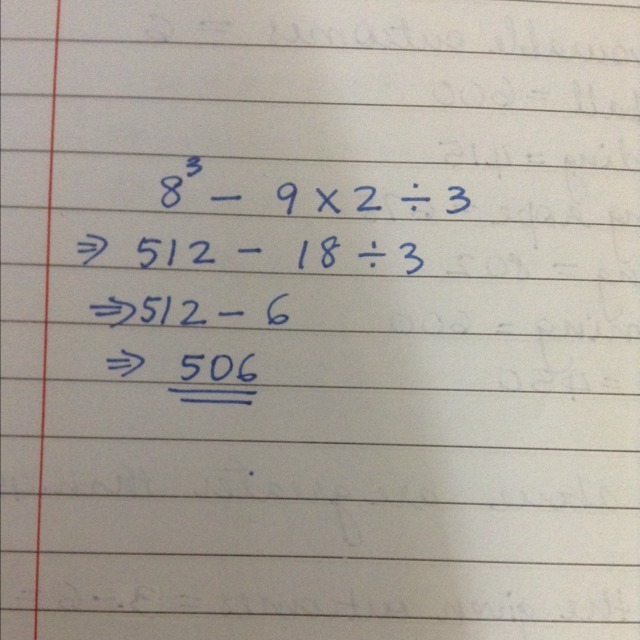 8³ - 9 × 2 ÷ 3
⇒ 512 - 18 ÷ 3
⇒ 512 - 6
⇒ 506